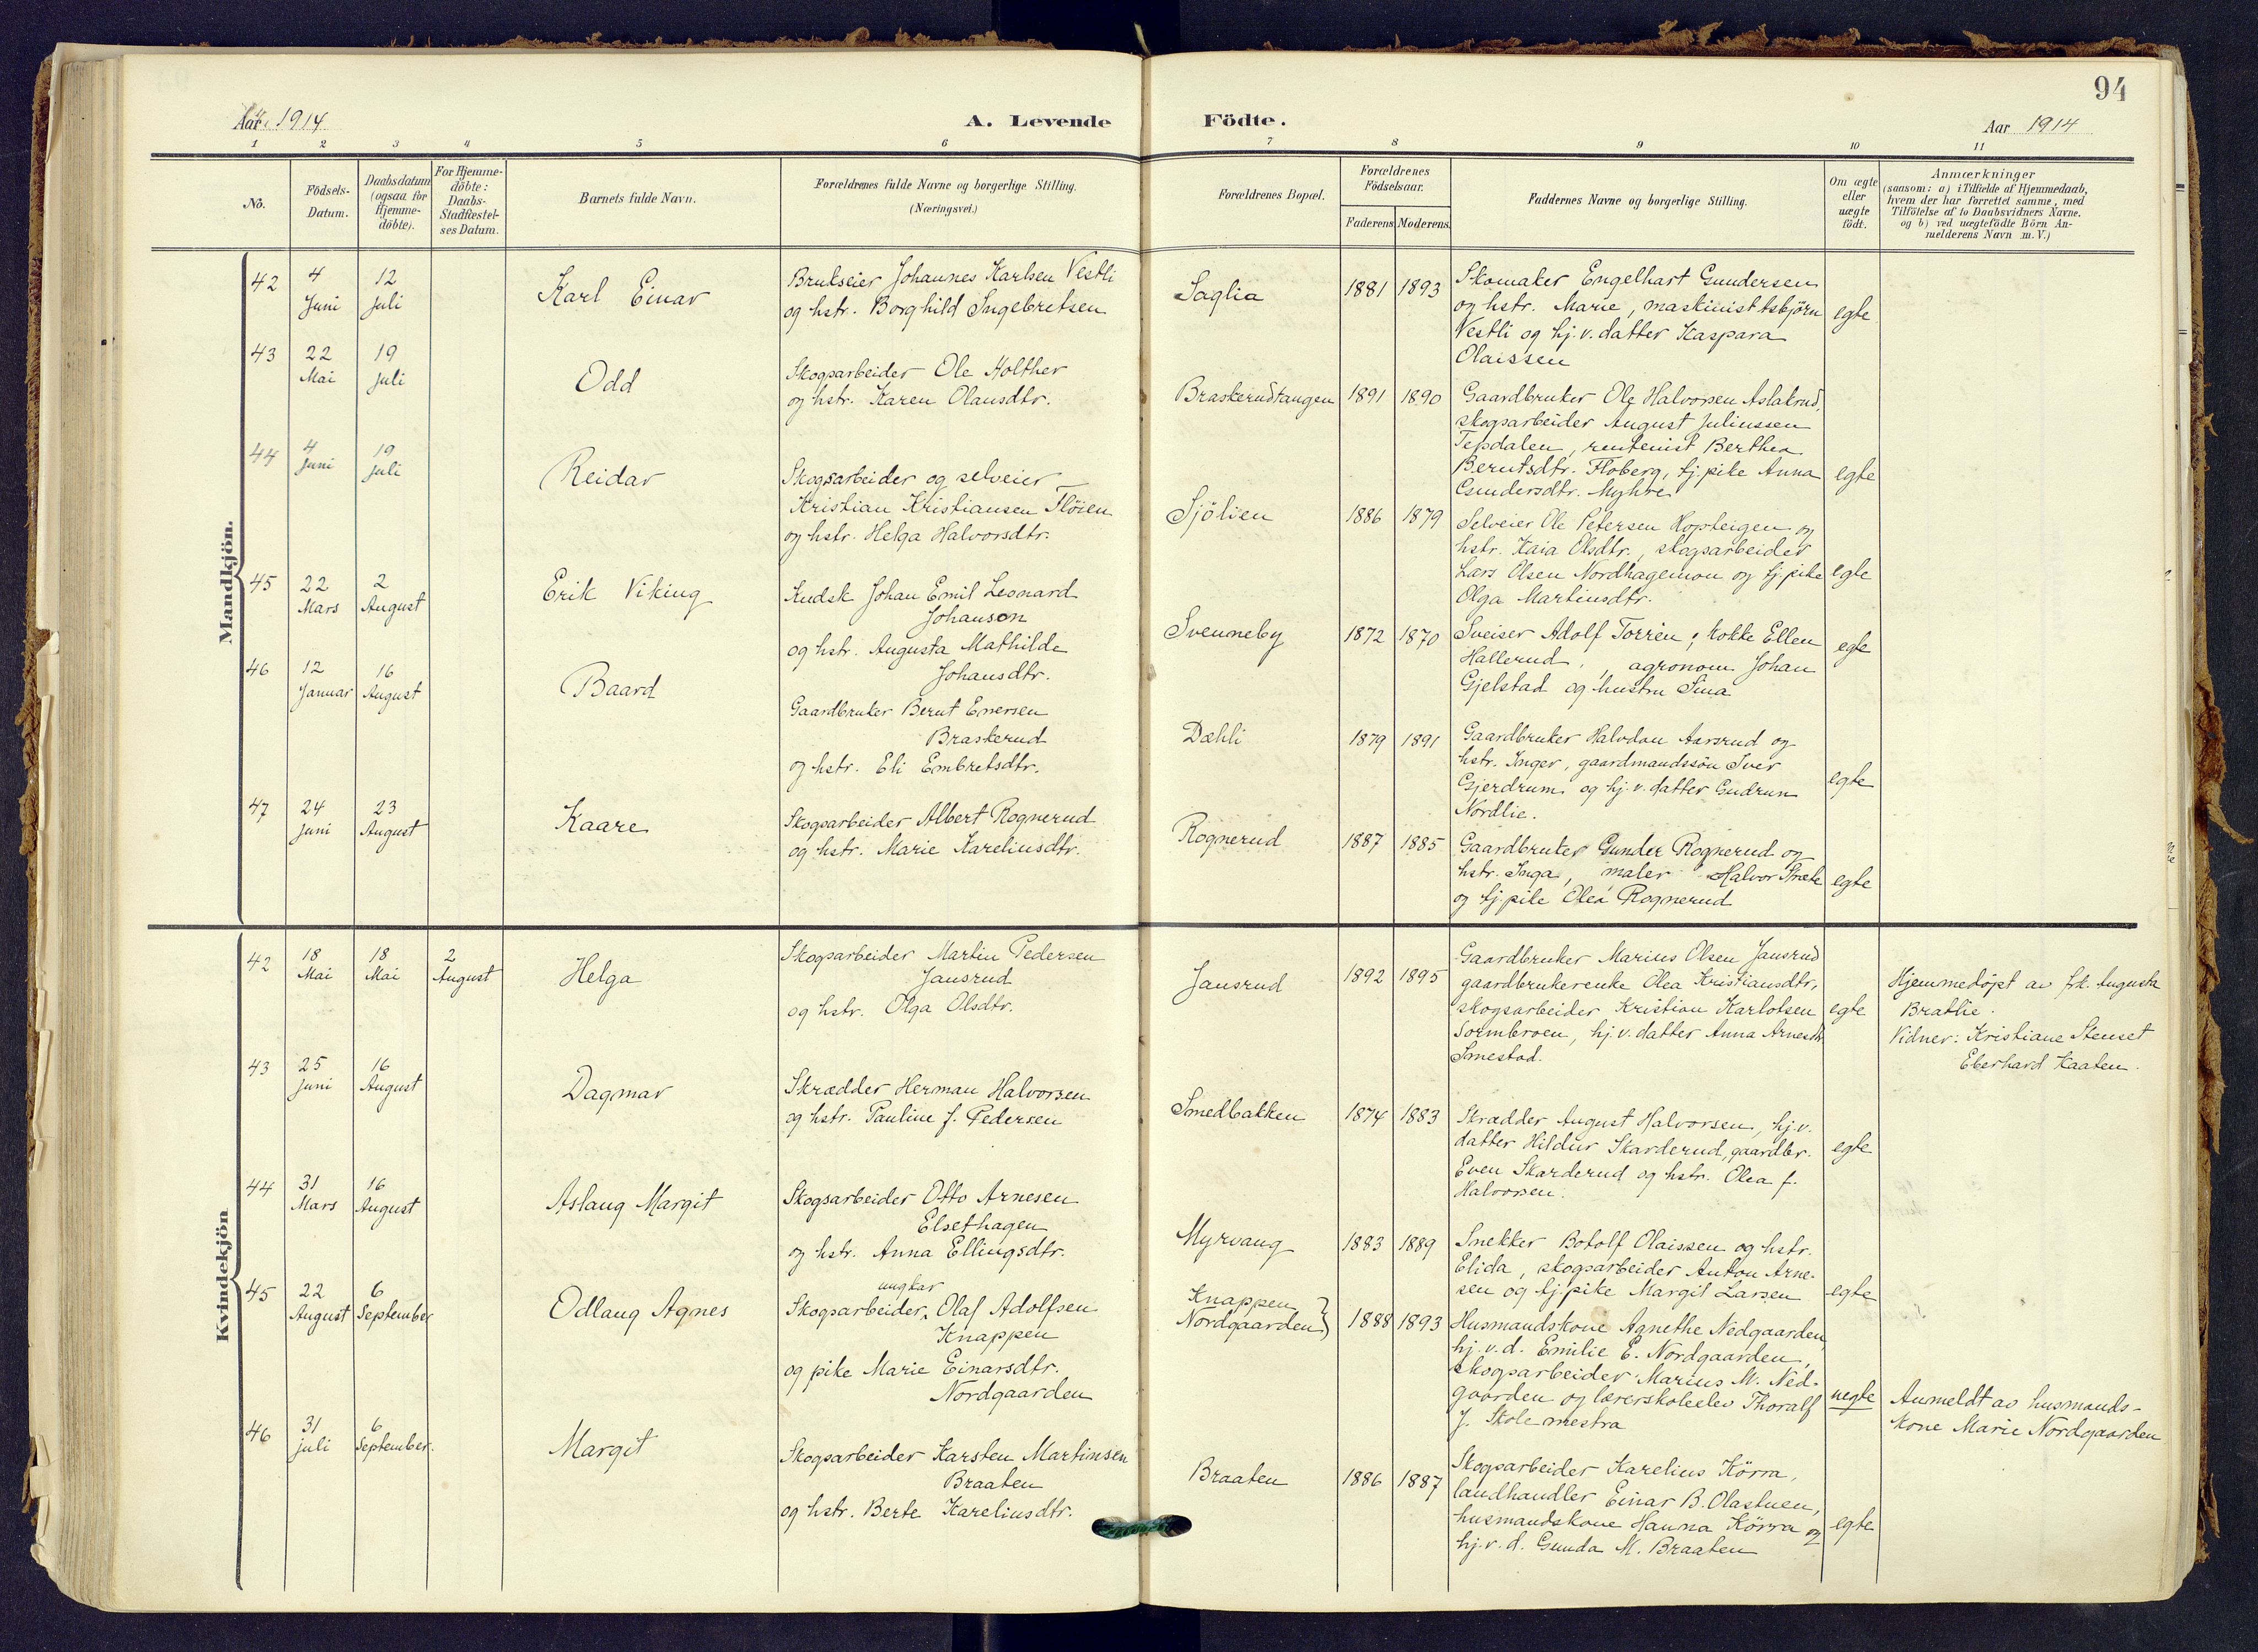 94
Aar 1914
A. Levende Födte.
Aar 1914
1 2 3 4 5 6 7 8 9 10 11
No.
Födsels-
Datum.
Daabsdatum
(ogsaa for
Hjemme-
döbte).
For Hjemme-
döbte:
Daabs-
Stadfæstel-
ses Datum.
Barnets fulde Navn.
Forældrenes fulde Navne og borgerlige Stilling.
(Næringsvei.)
Forældrenes Bopæl.
Forældrenes
Födselsaar.
Faderens. Moderens.
Faddernes Navne og borgerlige Stilling.
Om ægte
eller
uægte
födt.
Anmærkninger
(saasom: a) i Tilfælde af Hjemmedaab,
hvem der har forrettet samme, med
Tilföielse af to Daabsvidners Navne.
og b) ved uægtefödte Börn An-
melderens Navn m. V.)
Mandkjön.
42
4
Juni
12
Juli
Karl Einar
Brukseier Johannes Karlsen Vestli
og hstr. Borghild Ingebretsen
Saglia
1881 1893
Skomaker Engelhart Gundersen
og hstr. Marie, maskinist Esbjörn
Vestli og hj. v. datter Kaspara
Olaissen
egte
43
22
Mai
19
Juli
Odd
Skogsarbeider Ole Holther
og hstr. Karen Olausdtr.
Braskerudtangen
1891 1890
Gaardbruker Ole Halvorsen Aslakrud,
skogsarbeider August Juliussen
Tepdalen, rentenist Berthea
Berntsdtr. Floberg, tj. pike Anna
Gundersdtr. Myhre
egte
44
4
Juni
19
Juli
Reidar
Skogsarbeider og selveier
Kristian Kristiansen Flöien
og hstr. Helga Halvorsdtr.
Sjölien
1886 1879
Selveier Ole Petersen Kopteigen og
hstr. Kaia Olsdtr., skogsarbeider
Lars Olsen Nordhagemon og tj. pike
Olga Martinsdtr.
egte
45
22
Mars
2
August
Erik Viking
Kudsk Johan Emil Leonard
Johanson
og hstr. Augusta Mathilde
Johansdtr.
Svenneby
1872 1870
Sveiser Adolf Torrèn, kokke Ellen
Hallerud, agronom Johan
Gjelstad og hustru Sina
egte
46
12
Januar
16
August
Baard
Gaardbruker Bernt Enersen
Braskerud
og hstr. Eli Embretsdtr.
Dæhli
1879 1891
Gaardbruker Halvdan Aarsrud og
hstr. Inger, gaardmandssön Iver
Gjerdrum og hj. v. datter Gudrun
Nordlie.
egte
47
24
Juni
23
August
Kaare
Skogsarbeider Albert Rognerud
og hstr. Marie Kareliusdtr.
Rognerud
1887 1885
Gaardbruker Gunder Rognerud og
hstr. Inga, maler Halvor Stræte
og tj. pike Olea Rognerud
egte
Kvindekjön
42
18
Mai
18
Mai
2
August
Helga
Skogsarbeider Martin Pedersen
Jansrud
og hstr. Olga Olsdtr.
Jansrud
1892 1895
Gaardbruker Marius Olsen Jansrud
gaardbrukerenke Olea Kristiansdtr.,
skogsarbeider Kristian Karlotsen
Sormbroen, hj. v. datter Anna Arnesdtr.
Smestad.
egte
Hjemmedøpt av frk. Augusta
Brathie.
Vidner: Kristiane Stenset
Eberhard Kaaten.
43
25
Juni
16
August
Dagmar
Skrædder Herman Halvorsen
og hstr. Pauline f. Pedersen
Smedbakken
1874 1883
Skrædder August Halvorsen, hj. v.
datter Hildur Skarderud, gaardbr.
Even Skarderud og hstr. Olea f.
Halvorsen.
egte
44
31
Mars
16
August
Aslaug Margit
Skogsarbeider Otto Arnesen
Elsethagen
og hstr. Anna Ellingsdtr.
Myrvang
1883 1889
Snekker Botolf Olaissen og hstr.
Elida, skogsarbeider Anton Arne-
sen og tj. pike Margit Larsen
egte
45
22
August
6
September
Odlaug Agnes
ungkar
Skogsarbeider, Olaf Adolfsen
Knappen
og pike Marie Einarsdtr.
Nordgaarden
Knappen
Nordgaarden
1888 1893
Husmandskone Agnethe Nedgaarden,
hj. v. d. Emilie E. Nordgaarden,
skogsarbeider Marius M. Ned-
gaarden og lærerskoleelev Thoralf
J. Skolemestra
uegte
Anmeldt av husmands-
kone Marie Nordgaarden
46
31
Juli
6
September.
Margit
Skogsarbeider Karsten Martinsen
Braaten
og hstr. Berte Kareliusdtr.
Braaten
1886 1887
Skogsarbeider Karelius Körra,
landhandler Einar B. Olastuen,
husmandskone Hanna Körra og
hj. v. d. Gunda M. Braaten
egte